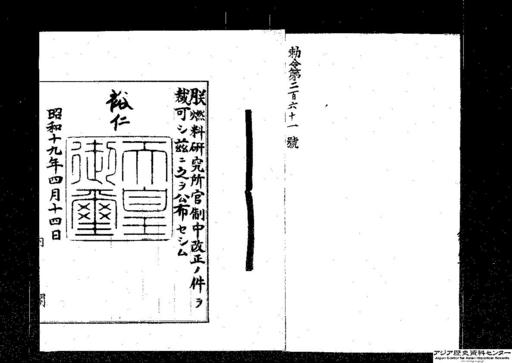 勅令第二百六十一號
朕燃料硏究所官制中改正ノ件ヲ
裁可シ茲ニ之ヲ公布セシム
裕仁
天皇
御璽
昭和十九年四月十四日
アジア歴史資料センター
Japan Center for Asian Historical Records